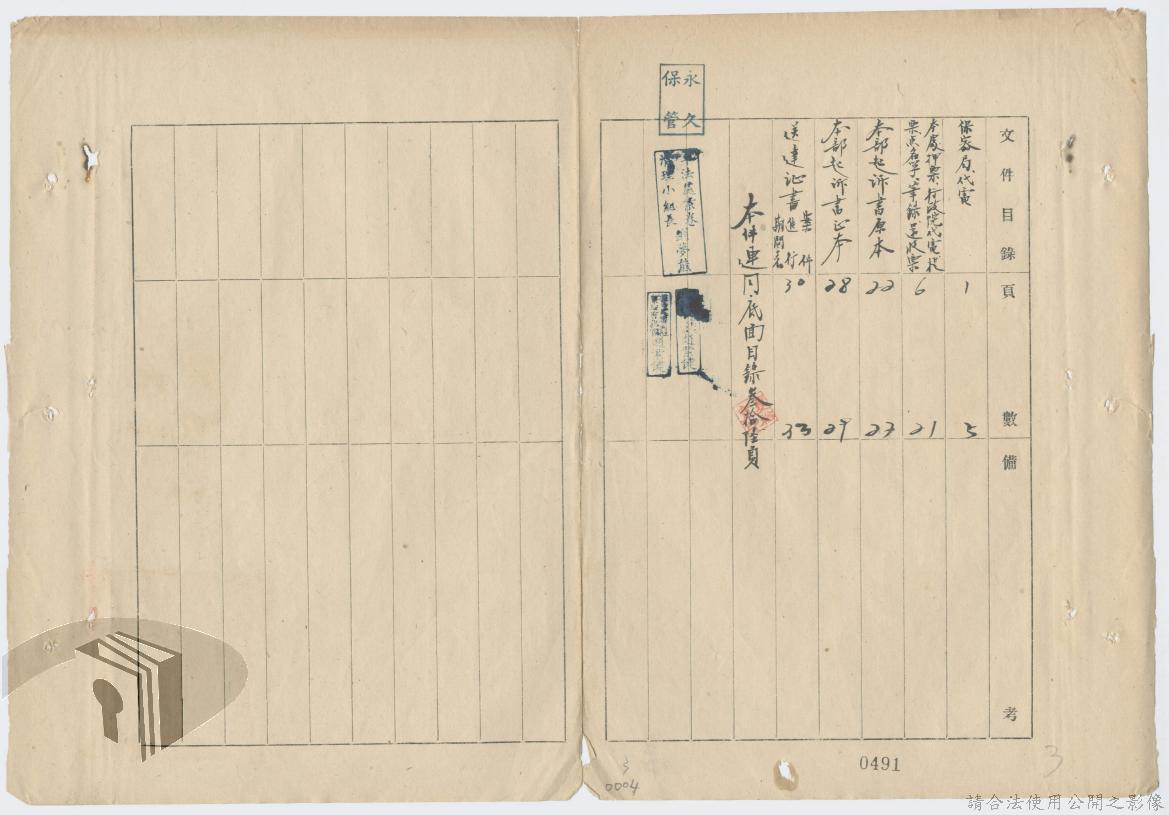 文件目錄 頁數 備考
保密局代電 1 5
本處押票行政院代電提
票点名單筆錄還收票 6 21
本部起訴書原本 22 23
本部起訴書正本 28 29
送達证書 案件進行期間表 30 33
本件連同底面目錄叁拾陸頁
永久
保管
軍法處案卷
清理小組長 劉夢熊
0491
3
3
0004
請合法使用公開之影像